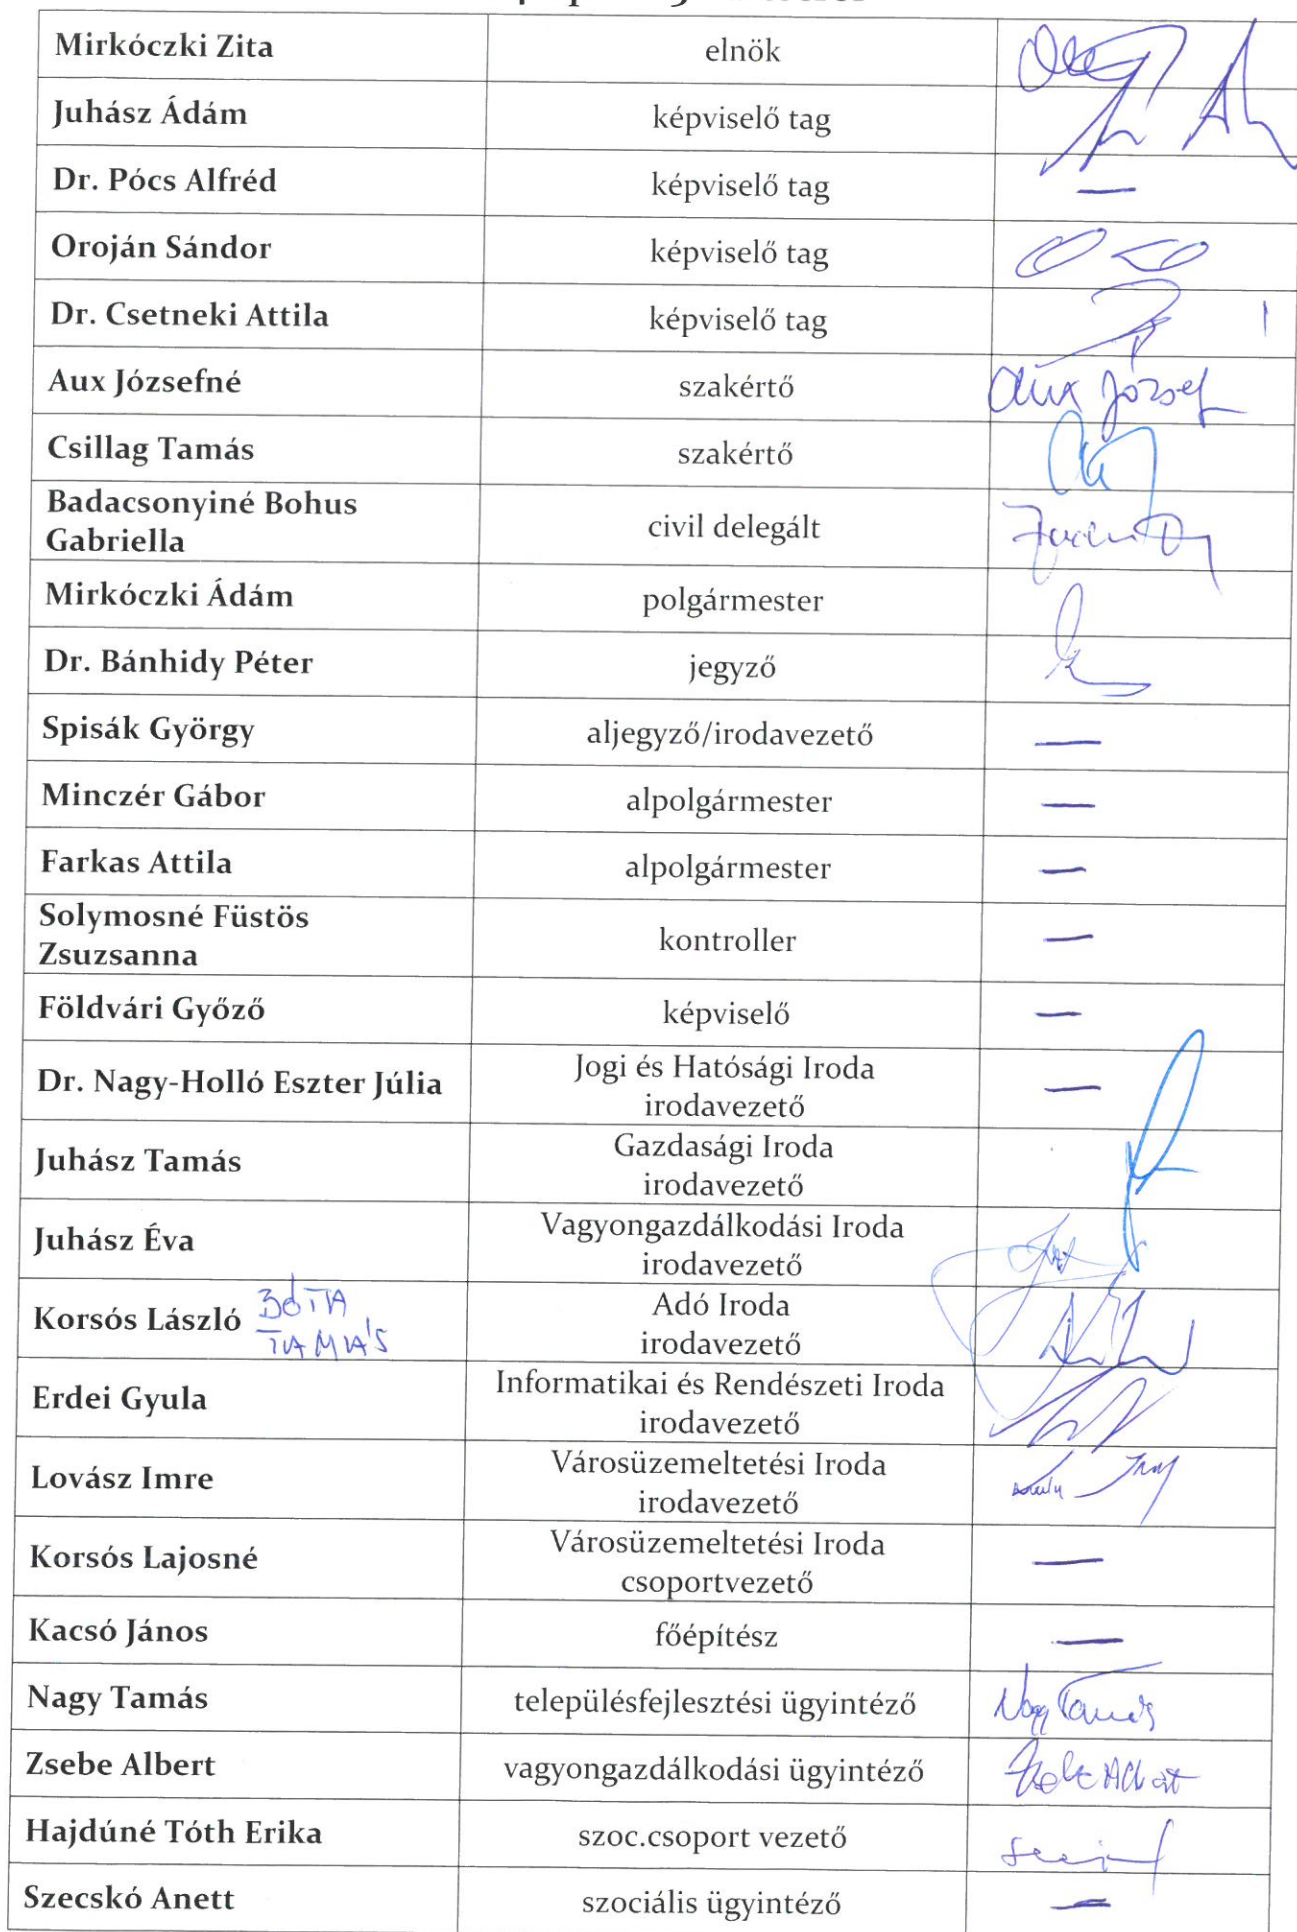 Mirkóczki Zita elnök
Juhász Ádám képviselő tag
Dr. Pócs Alfréd képviselő tag —
Oroján Sándor képviselő tag
Dr. Csetneki Attila képviselő tag
Aux Józsefné szakértő Aux József
Csillag Tamás szakértő
Badacsonyiné Bohus
Gabriella civil delegált
Mirkóczki Ádám polgármester
Dr. Bánhidy Péter jegyző
Spisák György aljegyző/irodavezető —
Minczér Gábor alpolgármester —
Farkas Attila alpolgármester —
Solymosné Füstös
Zsuzsanna kontroller —
Földvári Győző képviselő —
Dr. Nagy-Holló Eszter Júlia Jogi és Hatósági Iroda
irodavezető —
Juhász Tamás Gazdasági Iroda
irodavezető
Juhász Éva Vagyongazdálkodási Iroda
irodavezető
Korsós László BÓTA
TAMÁS Adó Iroda
irodavezető
Erdei Gyula Informatikai és Rendészeti Iroda
irodavezető
Lovász Imre Városüzemeltetési Iroda
irodavezető
Korsós Lajosné Városüzemeltetési Iroda
csoportvezető —
Kacsó János főépítész —
Nagy Tamás településfejlesztési ügyintéző Nagy Tamás
Zsebe Albert vagyongazdálkodási ügyintéző Zsebe Albert
Hajdúné Tóth Erika szoc.csoport vezető
Szecskó Anett szociális ügyintéző —